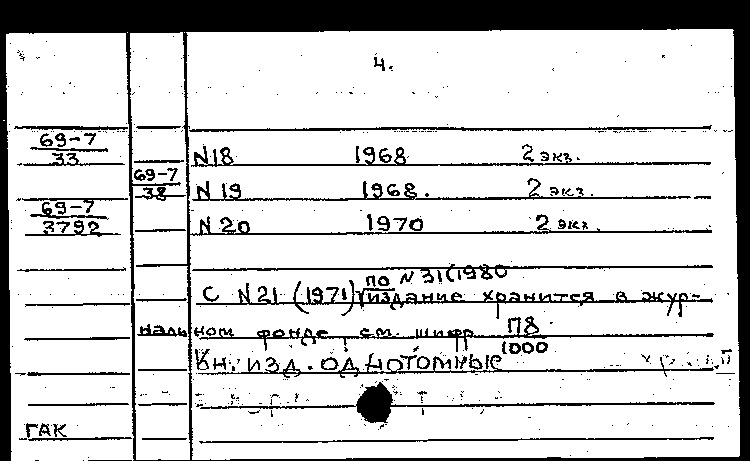 4.
69-7
33 N18 1968 2 экз.
69-7
38 N 19 1968. 2 экз.
69-7
3792 N 20 1970 2 экз.
по N 31(1980
С N21 (1971) издание хранится в жур-
нальном фонде, см. шифр П8
1000
Кн. изд. однотомные
ГАК